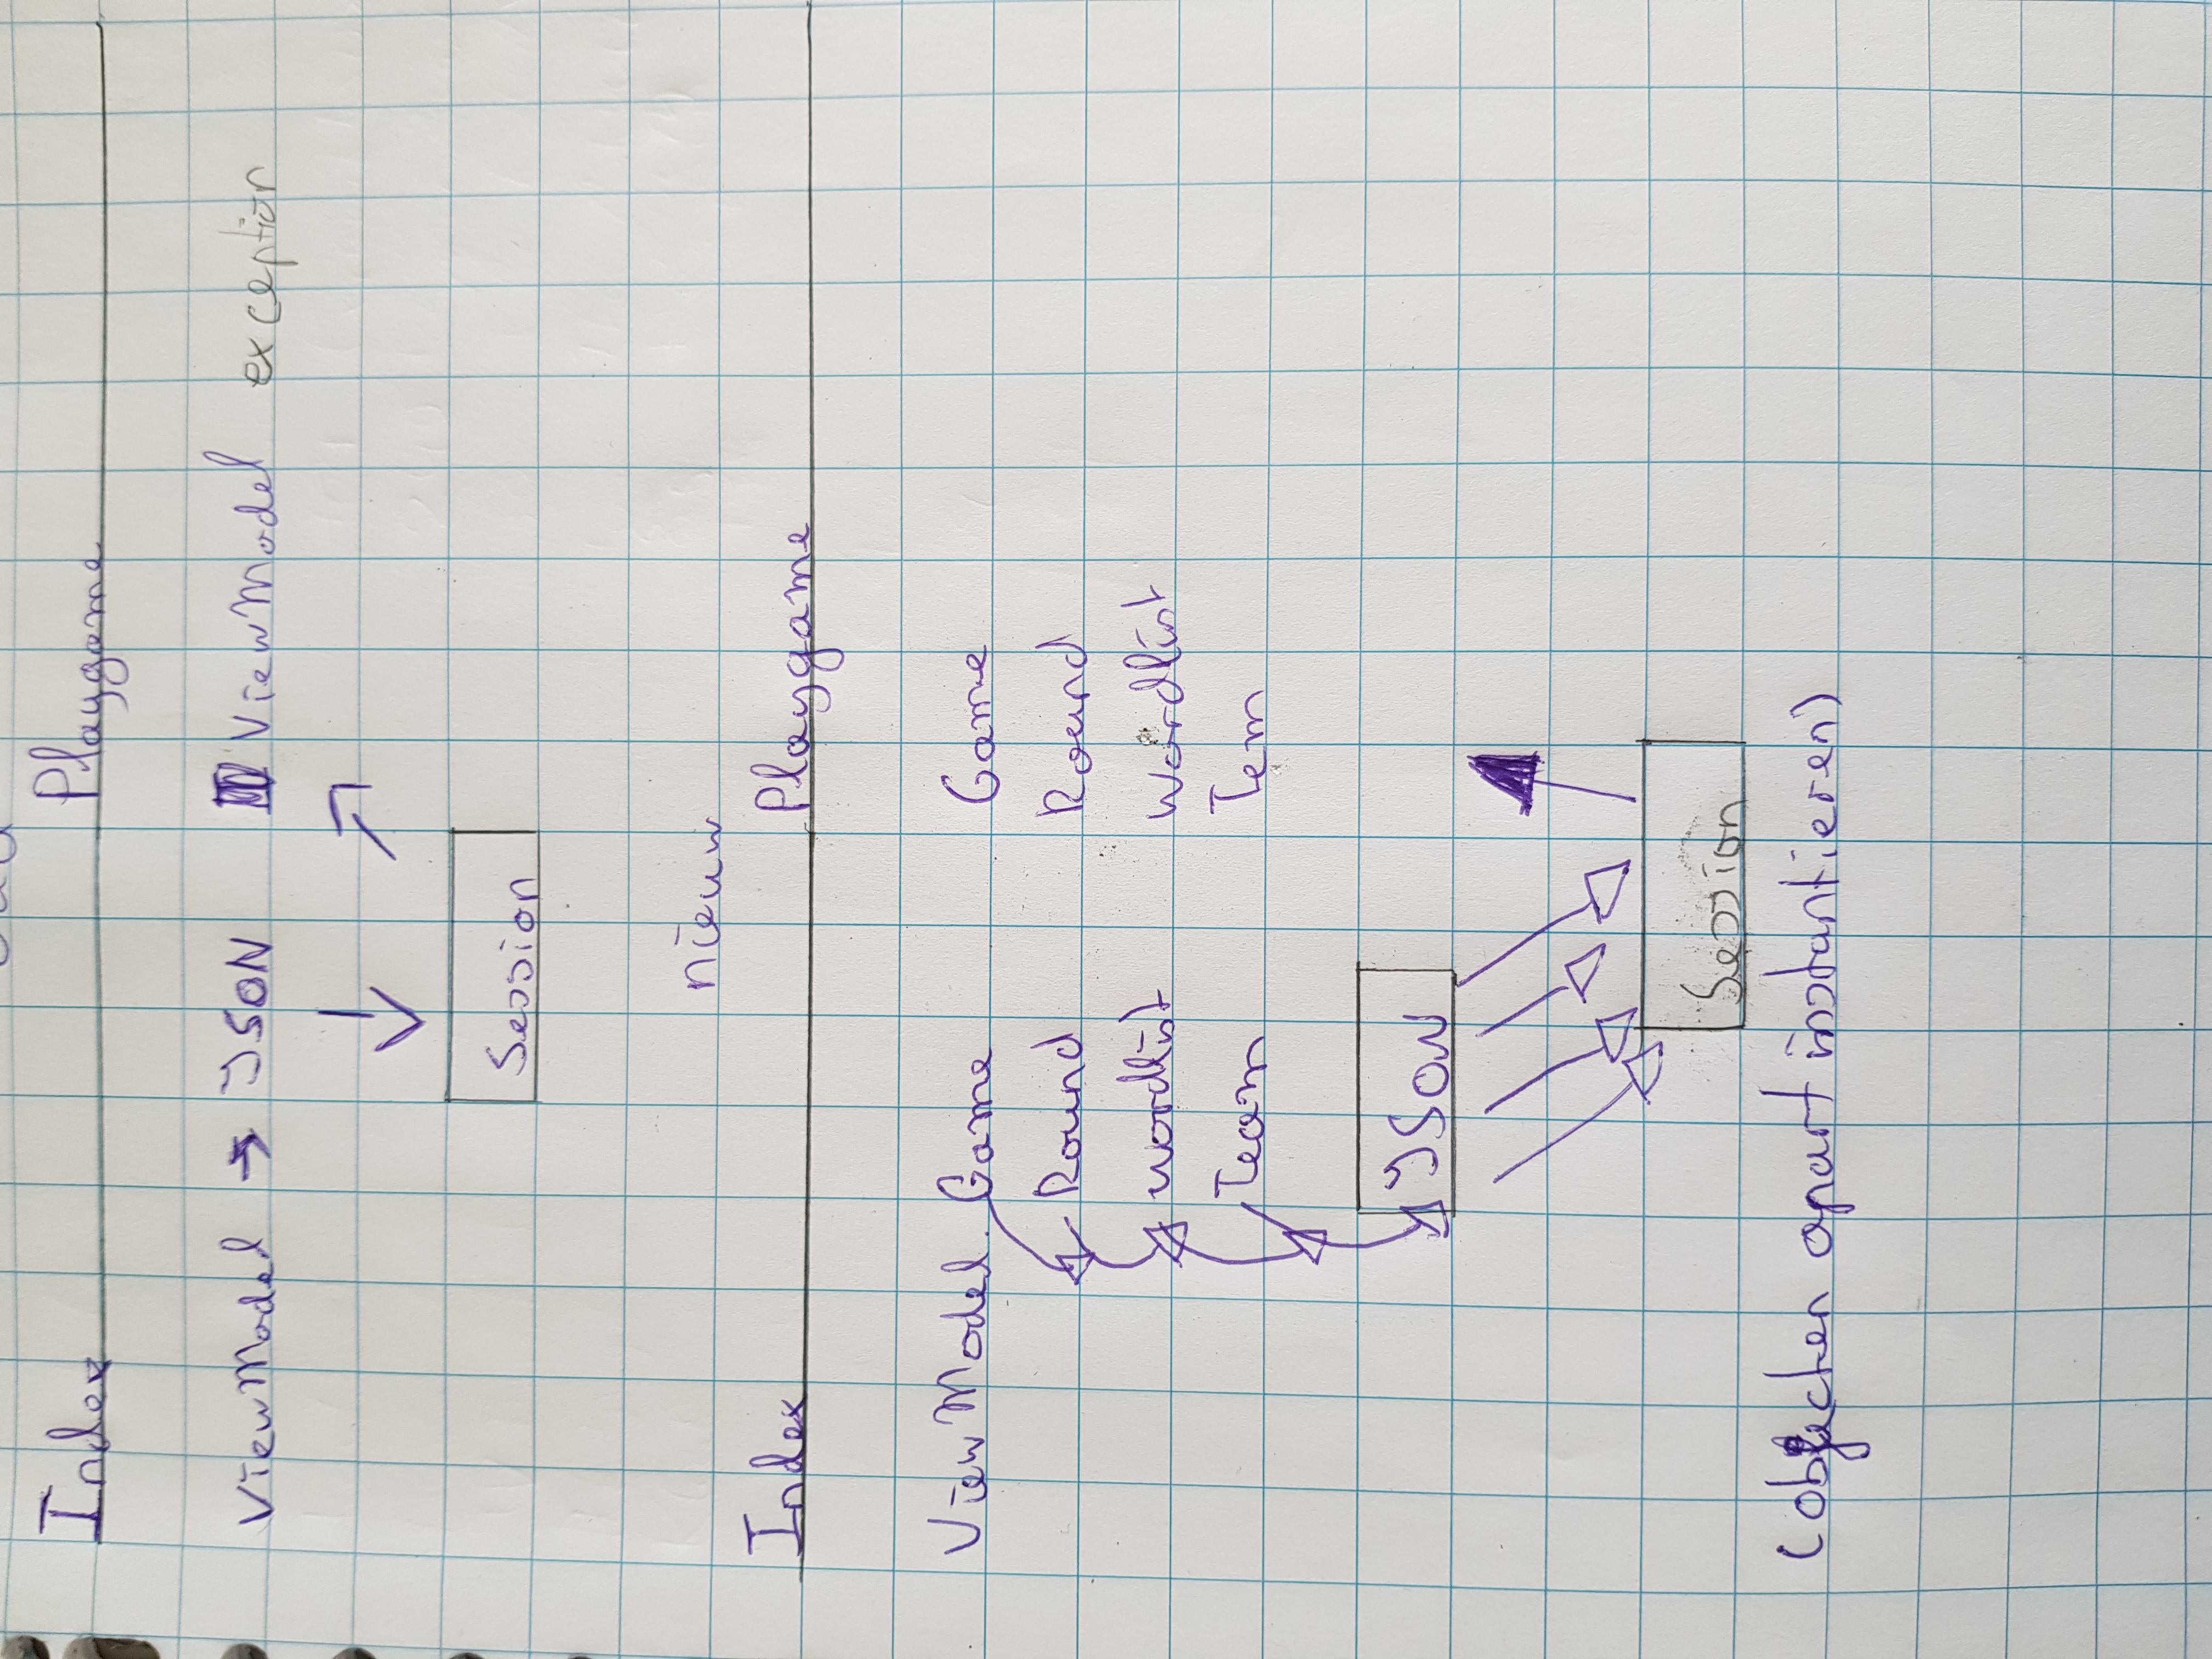 Index Playgame
ViewModel → JSON ViewModel exception
Session
nieuw
Index Playgame
ViewModel. Game Game
Round Round
wordlist wordlist
Team Tem
JSON
Session
(objecten apart instantieren)